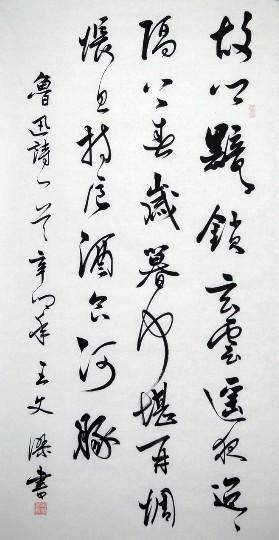 故鄉黯〻鎖玄雲遙夜迢〻
隔上春歲暮何堪再惆
悵且持卮酒食河豚
魯迅詩一首辛卯年王文書